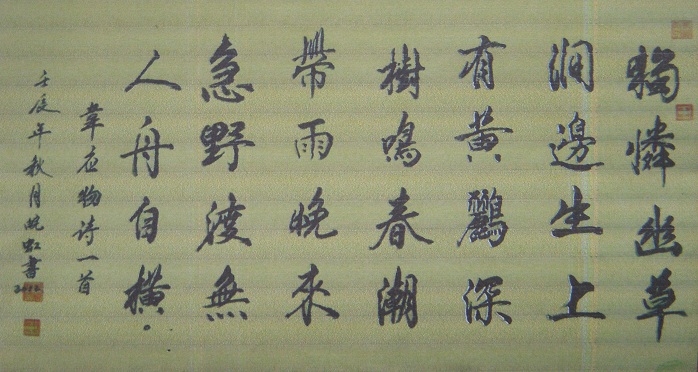 獨憐幽草
澗邊生上
有黃鸝深
樹鳴春潮
帶雨晚來
急野渡無
人舟自橫。
韋应物诗一首
壬辰年秋月虹書